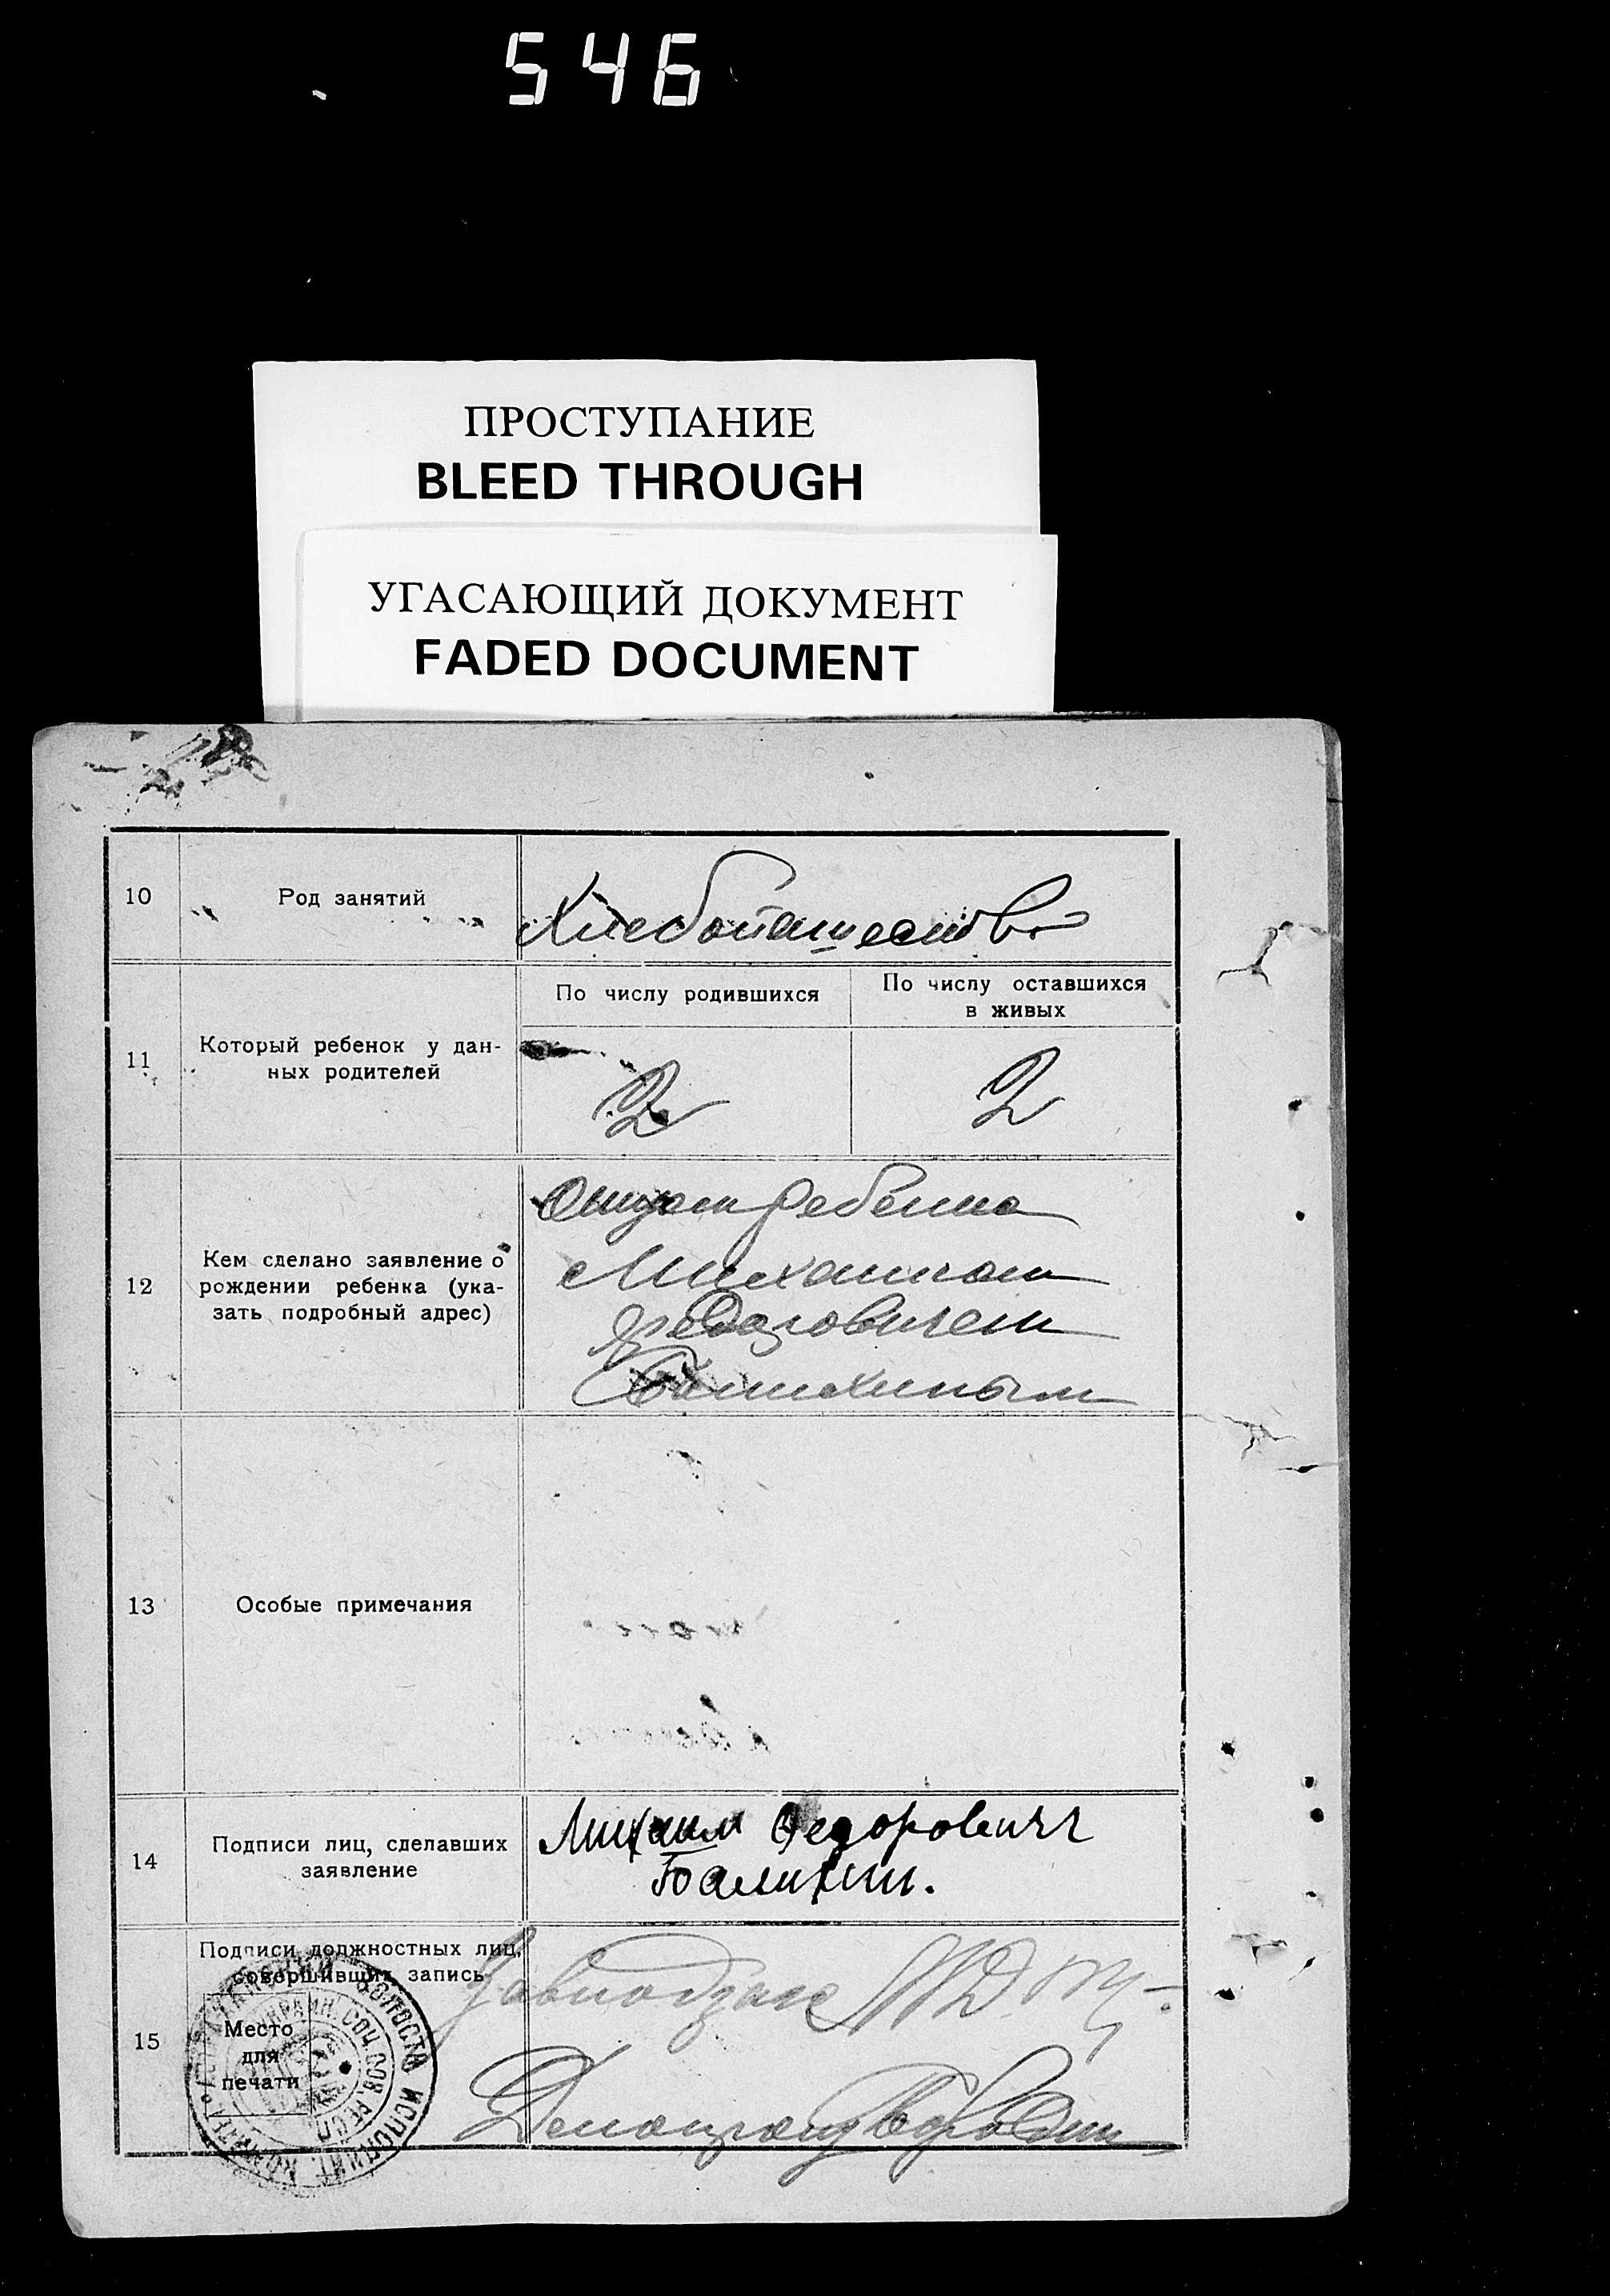 546
ПРОСТУПАНИЕ
BLEED THROUGH
УГАСАЮЩИЙ ДОКУМЕНТ
FADED DOCUMENT
10 Род занятий Хлебопашество
11 Который ребенок у дан-
ных родителей
По числу родившихся
2
По числу оставшихся
в живых
2
12 Кем сделано заявление о
рождении ребенка (ука-
зать подробный адрес)
Отцом ребенка
Михаилом
Федоровичем
13 Особые примечания
14 Подписи лиц, сделавших
заявление
Михаил Федорович
Балихин.
15 Подписи должностных лиц,
совершивших запись
Место
для
печати